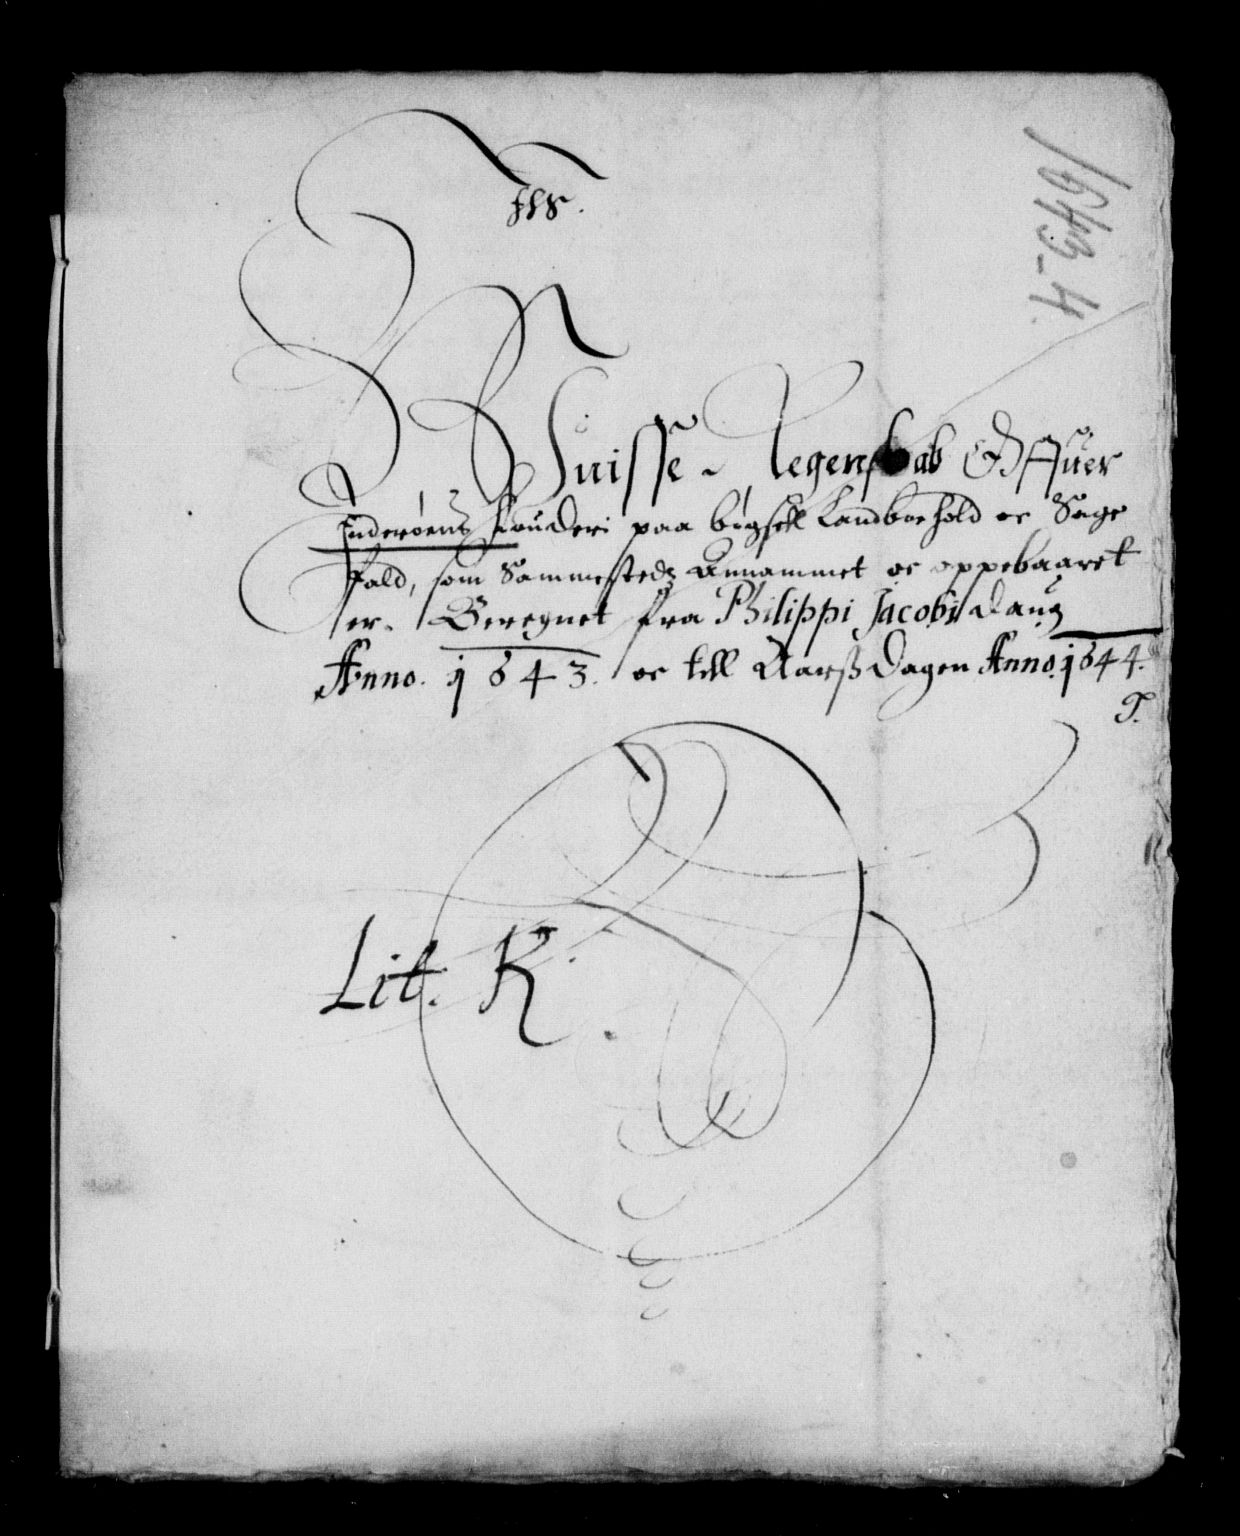 IHS.
1643-4
Wisse Regenskab Offuer
Inderøens Fouderi paa bøgsell Landboehold oc Sage
fald, som Sammestedz Annammet oc oppebaaret
er. Beregnet fra Philippi Jacobi daug
Anno. 1643. oc till AarßDagen Anno. 1644.
Lit. K.